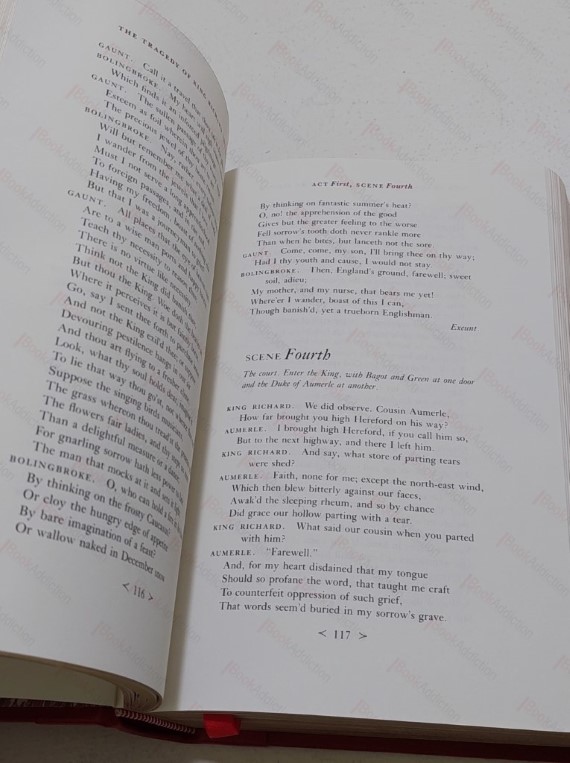 THE TRAGEDY OF KING
GAUNT. Call it a travel
BOLINGBROKE. My heart will
Which finds it an
GAUNT. The sullen passage of
Esteem as foil wherein
The precious jewel of thy
BOLINGBROKE. Nay, rather
Will but remember me what
I wander from the jewels that
Must I not serve a long apprenticehood
To foreign passages, and in
Having my freedom, boast
But that I was a journeyman
GAUNT. All places that the eye of
Are to a wise man ports and
Teach thy necessity to
There is no virtue like necessity
Think not the King did banish
But thou the King. Woe doth the
Where it perceives it is but faintly
Go, say I sent thee forth to
And not the King exil'd thee; or
Devouring pestilence hangs in our
And thou art flying to a fresher
Look, what thy soul holds dear, imagine
To lie that way thou go'st, not whence
Suppose the singing birds musicians,
The grass whereon thou tread'st the
The flowers fair ladies, and thy steps
Than a delightful measure or a
For gnarling sorrow hath less power to
The man that mocks at it and sets it light.
BOLINGBROKE. O, who can hold a fire in his
By thinking on the frosty Caucasus?
Or cloy the hungry edge of appetite
By bare imagination of a feast?
Or wallow naked in December snow
< 116 >
ACT First, SCENE Fourth
By thinking on fantastic summer's heat?
O, no! the apprehension of the good
Gives but the greater feeling to the worse
Fell sorrow's tooth doth never rankle more
Than when he bites, but lanceth not the sore.
GAUNT. Come, come, my son, I'll bring thee on thy way;
Had I thy youth and cause, I would not stay.
BOLINGBROKE. Then, England's ground, farewell; sweet
soil, adieu;
My mother, and my nurse, that bears me yet!
Where'er I wander, boast of this I can,
Though banish'd, yet a trueborn Englishman.
Exeunt
SCENE Fourth
The court. Enter the King, with Bagot and Green at one door
and the Duke of Aumerle at another.
KING RICHARD. We did observe. Cousin Aumerle,
How far brought you high Hereford on his way?
AUMERLE. I brought high Hereford, if you call him so,
But to the next highway, and there I left him.
KING RICHARD. And say, what store of parting tears
were shed?
AUMERLE. Faith, none for me; except the north-east wind,
Which then blew bitterly against our faces,
Awak'd the sleeping rheum, and so by chance
Did grace our hollow parting with a tear.
KING RICHARD. What said our cousin when you parted
with him?
AUMERLE. "Farewell."
And, for my heart disdained that my tongue
Should so profane the word, that taught me craft
To counterfeit oppression of such grief,
That words seem'd buried in my sorrow's grave.
< 117 >
BookAddiction